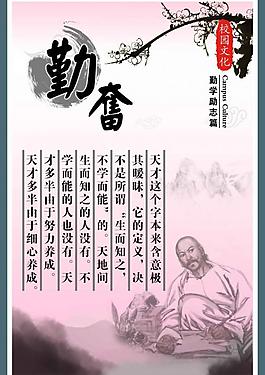 校园文化
Campus Culture
勤学励志篇
勤奋
天才这个字本来含意极
其暧味，它的定义，决
不是所谓“生而知之，
不学而能”的。天地间
生而知之的人没有。不
学而能的人也没有。天
才多半由于努力养成。
天才多半由于细心养成。